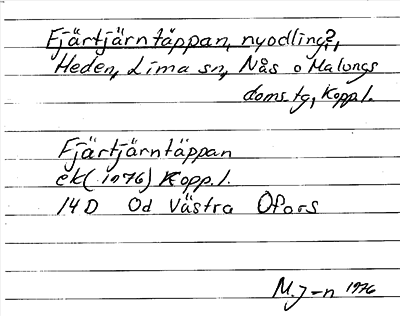 Fjärtjärntäppan, nyodling?,
Heden, Lima sn, Nås o Malungs
doms. tg, Kopp.l.
Fjärtjärntäppan
ek (1976) Kopp.l.
14D Od Västra Ofors
M.J-n 1976